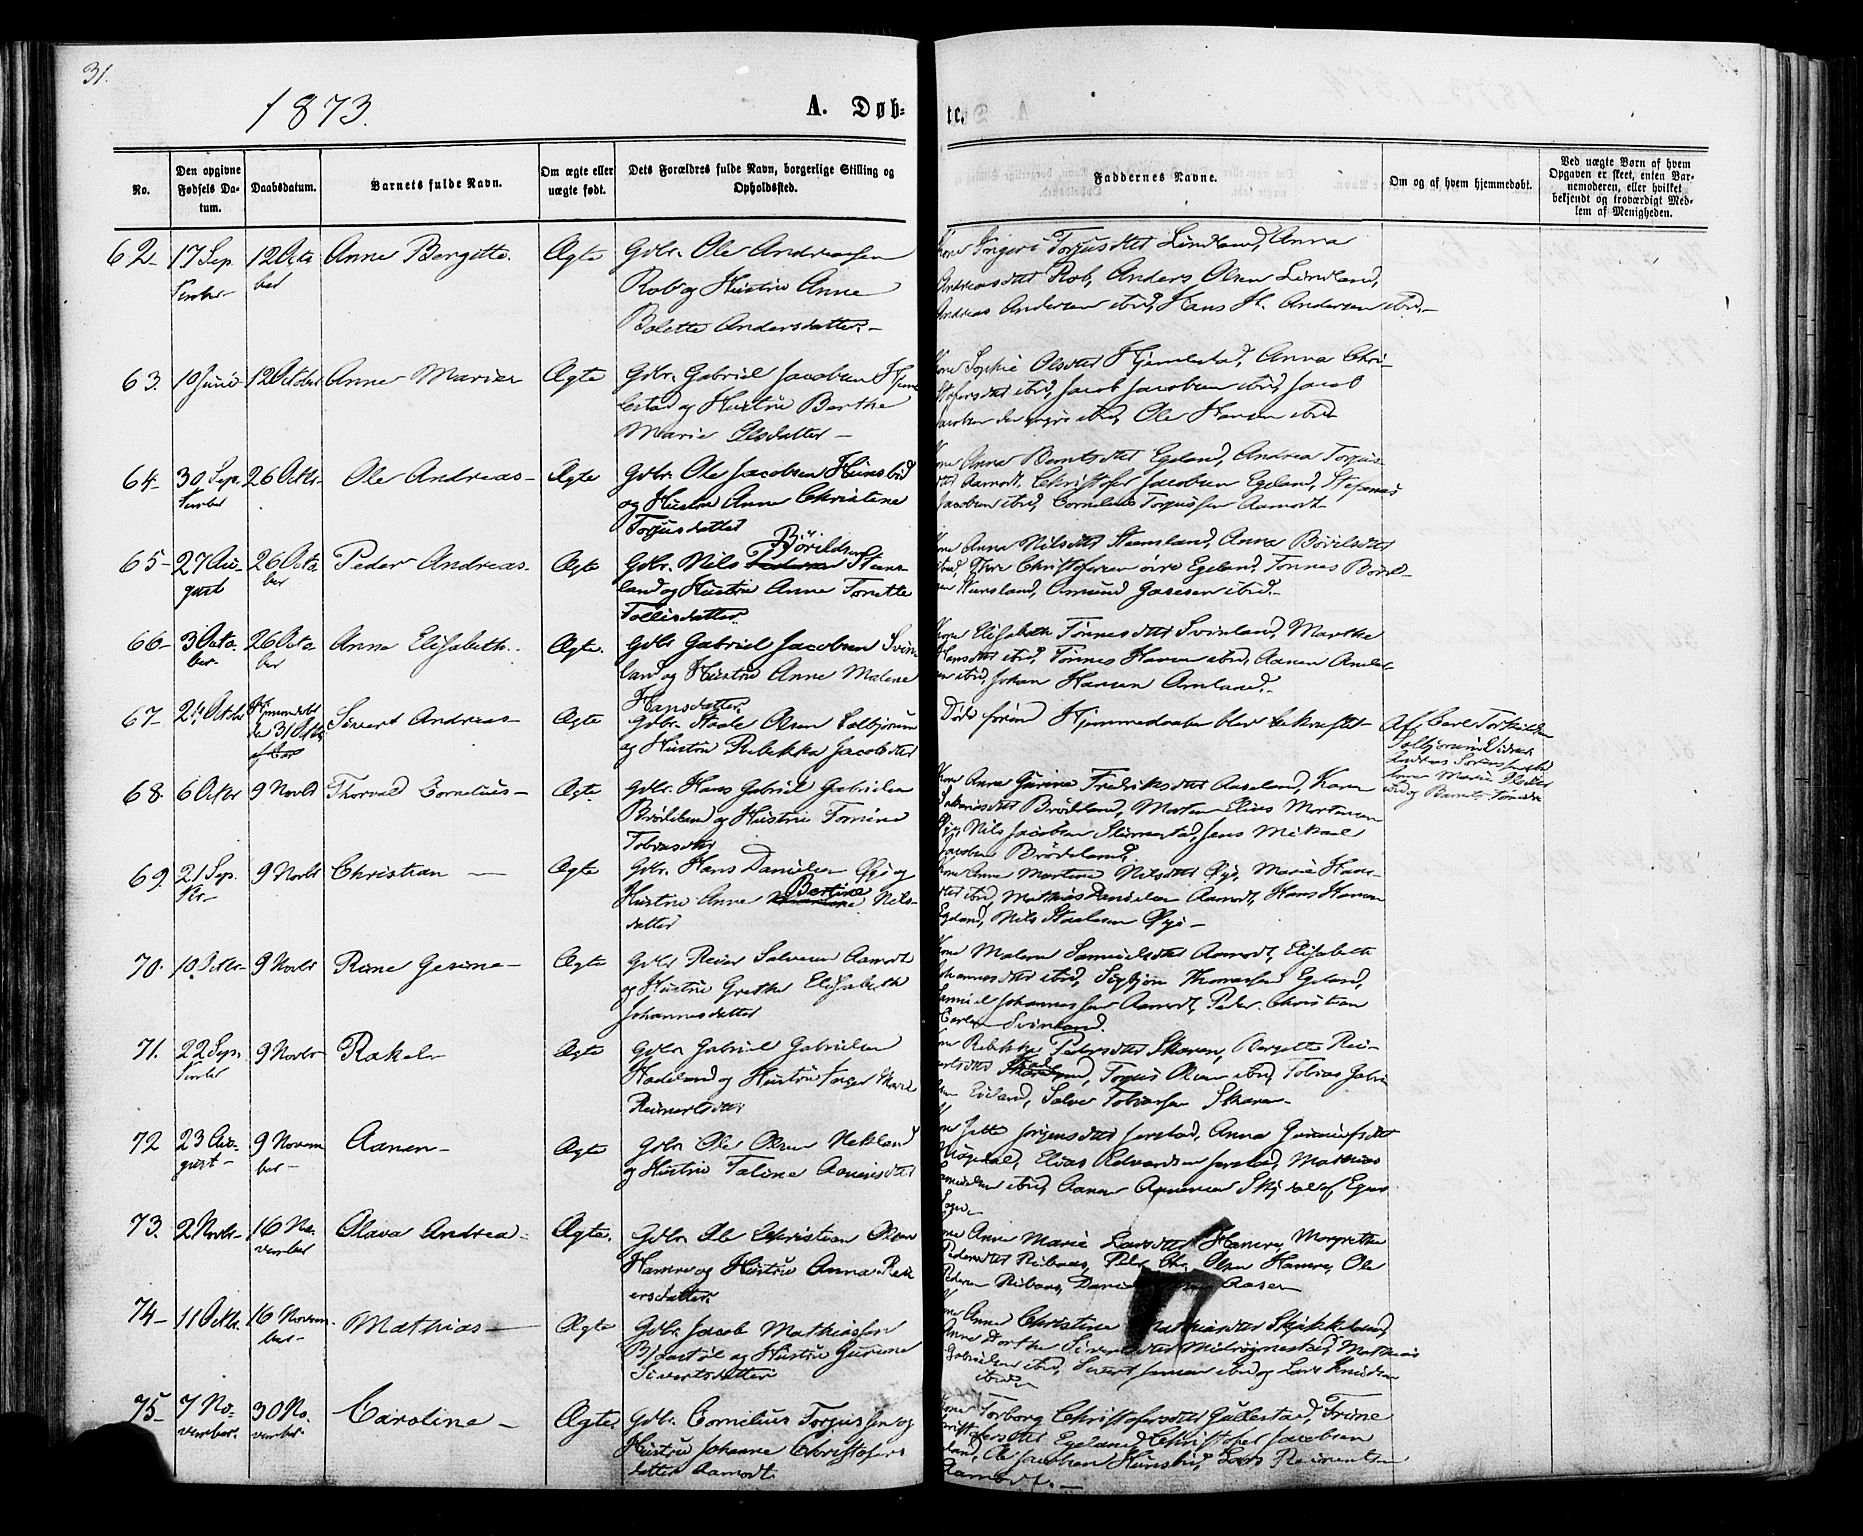 31.
1873.
A. Døb-
te.
No.
Den opgivne Fødsels Da-tum.
Daabsdatum.
Barnets fulde Navn.
Om ægte eller uægte født.
Dets Forældres fulde Navn, borgerlige Stilling og Opholdssted.
Faddernes Navne.
Om og af hvem hjemmedøbt.
Ved uægte Børn af hvem Opgaven er skeet, enten Bar-nemoderen, eller hvilket bekjendt og troværdigt Med-lem af Menigheden.
62 17 Sep. 12 Octo Anne Bergitte. Ægte Gdbr. Ole Andreassen
tember ber Rob og Hustru Anne
Bolette Andersdatter.
Kone Ingeri Torjusdtt Lindland, Anna
Andreasdtt Rob, Anders Olsen Lindland,
Andreas Andersen ibid, Hans H. Andersen ibid.
63. 10 Juni 12 October Anne Marie Ægte Gdbr. Gabriel Jacobsen Hjem
lestad og Hustru Berthe
Marie Olsdatter
Kone Sophie Olsdtt Hjemlestad, Anna Chri-
stofersdtt ibid, Jacob Jacobsen ibid, Jacob
Jacobsen den yngre ibid, Ole Hansen ibid
64 30 Sep. 26 Octbr. Ole Andreas Ægte Gdbr. Ole Jacobsen Hunsbid
tember og Hustru Anne Christine
Torjusdatter
Kone Anne Berntsdtt Egeland, Andrea Torjus-
dtt Aamodt, Christofer Jacobsen Egeland, Stefanus
Jacobsen ibid, Cornelius Torjussen Aamodt
65 27 Au- 26 Octo Peder Andreas Ægte Gdbr. Nils Börildsen Steens
gust ber land og Hustru Anne Tonette
Tollisdatter.
Kone Anne Nilsdtt Steensland, Anna Börilsdtt
ibid, Christofersen öire Egeland, Tönnes
Hunsland, Amund ibid.
66 3 Octo 26 Octo Anna Elisabeth. Ægte. Gdbr Gabriel Jacobsen Svin
ber ber land og Hustru Anne Malene
Hansdatter.
Kone Elisabeth Tönnesdtt Svinland, Marthe
Hansdtt ibid, Tönnes Hansen ibid, Aanen
ibid, Johan Hansen Omland.
67 24 Octbr Hjemmedøbt Sivert Andreas Ægte Gdbr. Staale Olsen Solbjorum
de 31 Octbr og Hustru Rebekka Jacobsdtt
Døde førend Hjemmedaaben blev bekræftet
Af Carl Torkildsen
Solbjorum
68. 6 Octbr 9 Novbr Thorvald Cornelius Ægte Gdbr. Hans Gabriel Gabrielsen
Brödeland og Hustru Tomine
Tobiasdtt
Kone Anne Gurine Fredriksdtt Aaseland, Karen
Gabrielsdtt Brödeland, Morten Elias Mortensen
Öye, Nils Jacobsen Jens Mikael
Jacobsen Brödeland.
69. 21 Sep. 9 Novbr Christian Ægte Gdbr. Hans Danielsen Öye og
tbr Hustru Anne Bertine Nils-
datter
Kone Anne Martine Nilsdtt Öye, Marie Hans-
dtt ibid, Mathias Danielsen Aamodt, Hans Hansen
Egeland, Nils Staalesen Öye
70. 10 Octbr 9 Novbr Rine Gesine Ægte Gdbr Reier Salvesen Aamodt
og Hustru Grethe Elisabeth
Johannesdatter
Kone Malene Samuelsdtt Aamodt, Elisabeth
Johannesdtt ibid, Sigbjörn Thomassen Egeland,
Samuel Johannessen Aamodt, Peder Christian
Carlsen Svinland.
71. 22 Sep. 9 Novbr Rakel Ægte Gdbr Gabriel Gabrielsen
tember Hadeland og Hustru Inger Marie
Reinertsdtt
Kone Rebekka Pedersdtt Skaren, Bergitte Rei-
nertsdtt Torjus Olsen ibid, Tobias Gabri
elsen Eikland, Salve Tobiassen Skaren
72 23 Au- 9 Novem Aanen Ægte Gdbr. Ole Olsen Nekland
gust ber og Hustru Taline Aanensdtt
Kone Jette Jörgensdtt Jerstad, Anna Gunnulfsdtt
Mögedal, Elias Edvardsen Jerstad, Mathias
Danielsen ibid, Aanen Aanensen af Eger
Sogn
73. 2 Novbr 16 No- Olava Andrea Ægte. Gdbr. Ole Christian Olsen
vember Hamre og Hustru Anna Rei
ersdatter.
Kone Anne Marie Larsdtt Hamre, Margrethe
Pedersdtt Ribaas, Peder Chr. Olsen Hamre, Ole
Pedersen Ribaas, Daniel Aasen
74 11 Octbr. 16 Novem Mathias Ægte Gdbr Jacob Mathiassen
ber Bjastöl og Hustru Gurine
Sivertsdatter
Kone Anne Christine Mathiasdtt Skjækkeland,
Anne Dorthe Sivertsdtt Midtrögnestad, Mathias
Gabrielsen ibid, Sivert Jensen ibid og Lars Knudsen
ibid
75 7 No- 30 No- Caroline Ægte. Gdbr. Cornelius Torjussen og
vember. vember Hustru Johanne Christofers
datter Aamodt.
Kone Torborg Christofersdtt Gullestad, Trine
Christofersdtt Egeland, Christofer Jacobsen
Egeland, Ole Jacobsen Hunsbid, Lars Reinertsen
Aamodt.